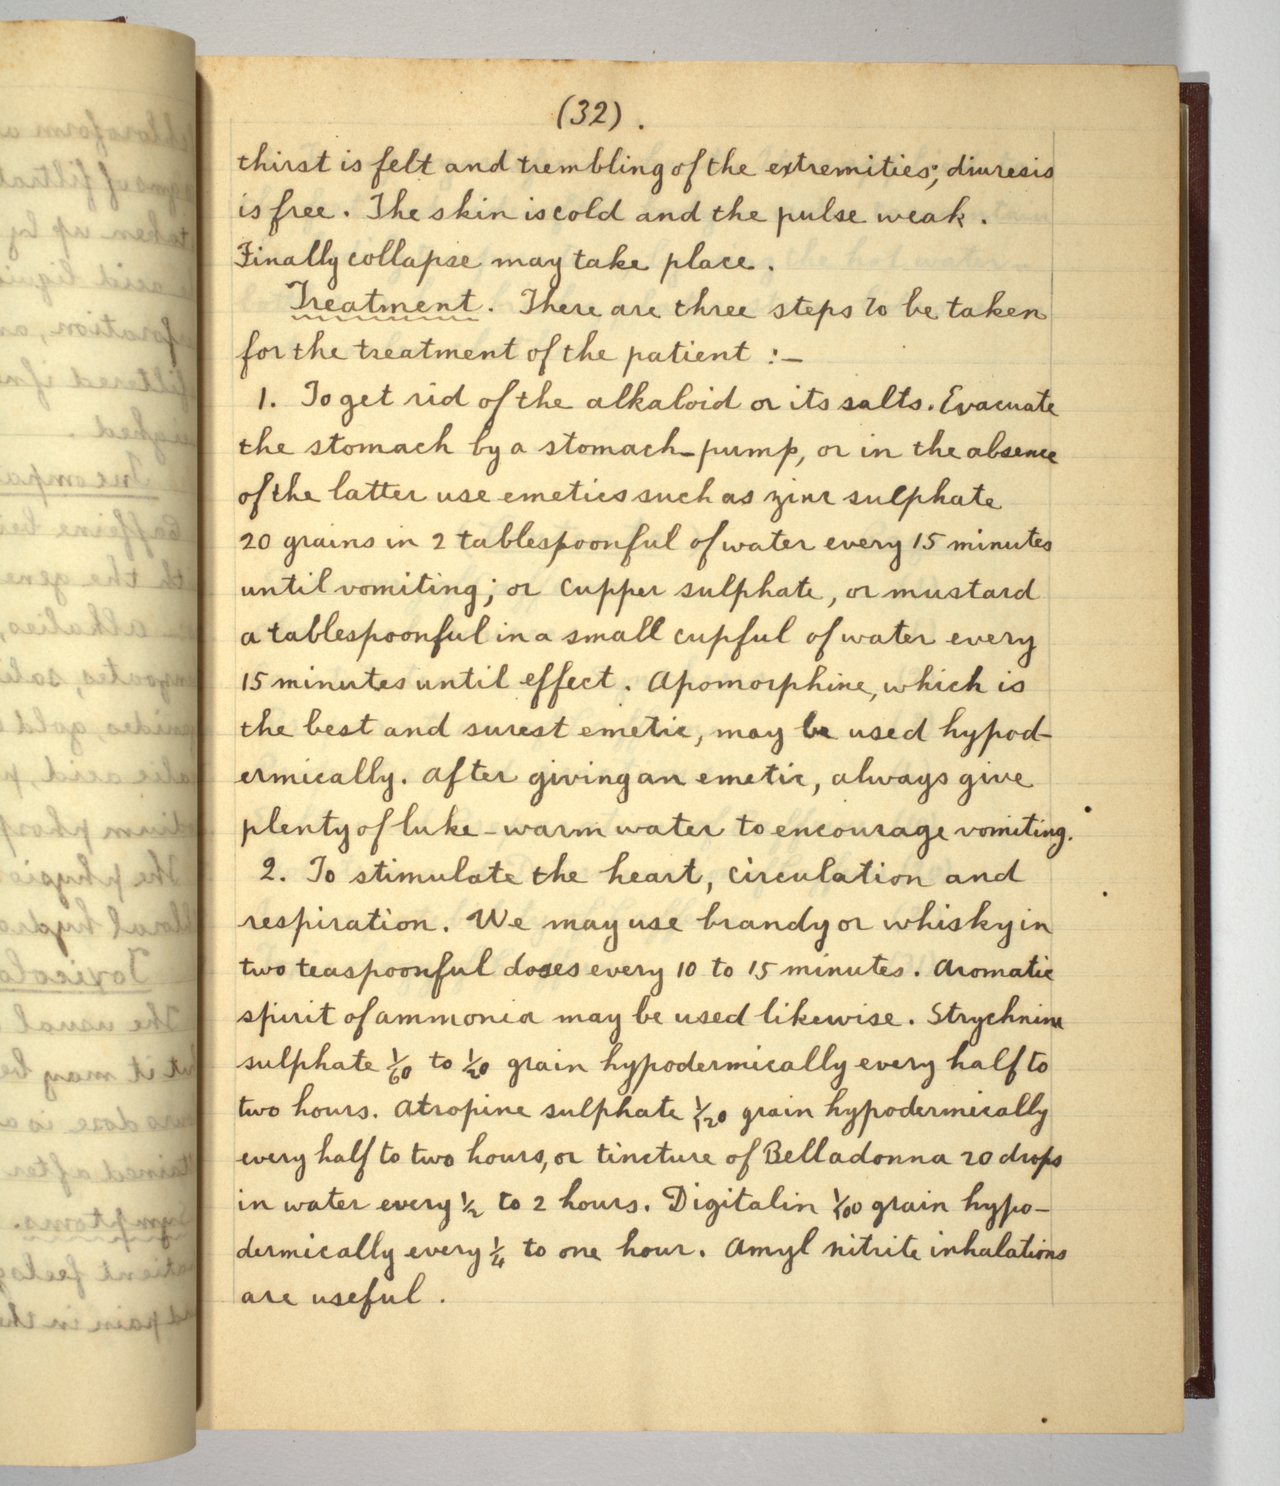 (32).
thirst is felt and trembling of the extremities; diuresis
is free. The skin is cold and the pulse weak.
Finally collapse may take place.
Treatment. There are three steps to be taken
for the treatment of the patient :—
1. To get rid of the alkaloid or its salts. Evacuate
the stomach by a stomach-pump, or in the absence
of the latter use emetics such as zinc sulphate
20 grains in 2 tablespoonful of water every 15 minutes
until vomiting; or cupper sulphate, or mustard
a tablespoonful in a small cupful of water every
15 minutes until effect. Apomorphine, which is
the best and surest emetic, may be used hypod-
ermically. After giving an emetic, always give
plenty of luke-warm water to encourage vomiting.
2. To stimulate the heart, circulation and
respiration. We may use brandy or whisky in
two teaspoonful doses every 10 to 15 minutes. Aromatic
spirit of ammonia may be used likewise. Strychnine
sulphate 1/60 to 1/20 grain hypodermically every half to
two hours. Atropine sulphate 1/120 grain hypodermically
every half to two hours, or tincture of Belladonna 20 drops
in water every 1/2 to 2 hours. Digitalin 1/100 grain hypo-
dermically every 1/4 to one hour. Amyl nitrite inhalations
are useful.